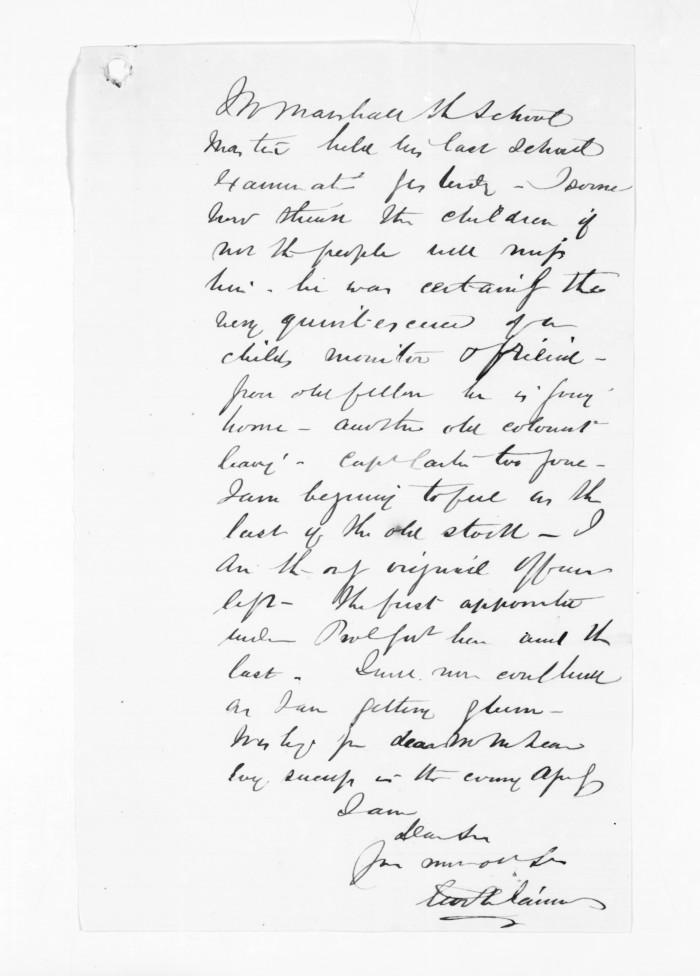 Mr Marshall the School
Master held his last School
Examinatn yesterday - I some
how think the children if
not the people will miss
him - he was certainly the
very quintescence of a
childs monitor & friend -
poor old fellow he is going
home - another old colonist
leaving - Capt Carter too gone -
I am begining to feel as the
last of the old stock - I
am the only original Officer
left - the first appointed
under Prov Govt here and the
last. I will now conclude
as I am getting glum -
Wishing you dear Mr McLean
Every success in the coming
I am
Dear Sir